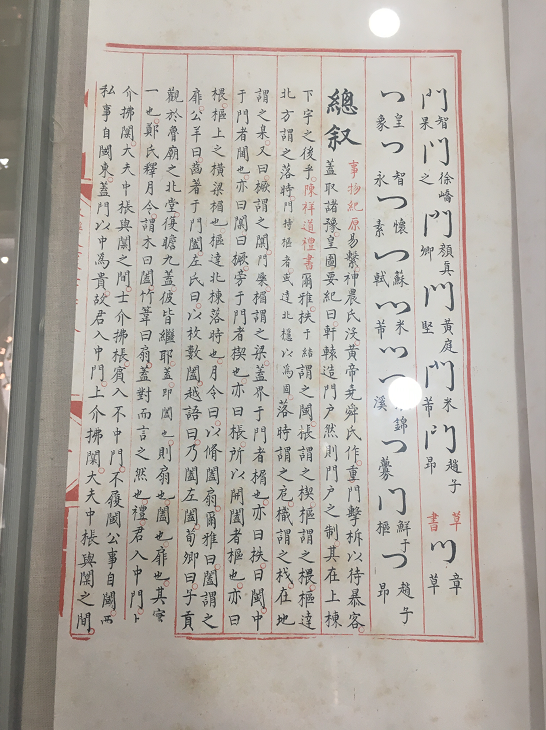 門智果門徐嶠之門顏真卿門黃庭堅門米芾門趙子昂草書門章草
門皇象門智永門懷素門蘇軾門米芾門溪錦門蔡門鮮于樞門趙子昂
總叙事物紀原易繫神農氏沒黃帝堯舜氏作重門擊柝以待暴客
蓋取諸豫皇圖要紀曰軒轅造門戶然則門戶之制其在上棟
下宇之後乎陳祥道禮書爾雅柣于結謂之閾棖謂之楔樞謂之椳樞達
北方謂之落時門持樞者或達北穩以為固落時謂之戹樴謂之杙在地
謂之臬又曰橛謂之闑門橜楣謂之梁蓋界于門者楣也亦曰柣曰閾中
于門者闑也亦曰闑曰橛旁于門者楔也亦曰棖所以開闔者樞也亦曰
椳樞上之橫梁楣也樞達北棟落時也月令曰以脩闔扇爾雅曰闔謂之
扉公羊曰齒著于門闔左氏曰以枚數闔越語曰乃闔左闔荀卿曰子貢
觀於魯廟之北堂復瞻九蓋彼皆繼耶蓋即闔也則扇也闔也扉也其實
一也鄭氏釋月令謂木曰闔竹葦曰扇蓋對而言之然也禮君入中門上
介拂闑大夫中棖與闑之間士介拂棖賓入不中門不履閾公事自闑西
私事自闑東蓋門以中為貴故君入中門上介拂闑大夫中棖與闑之間